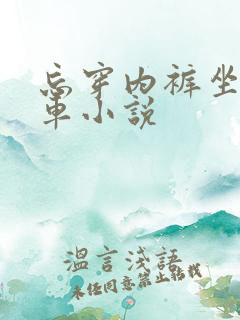 忘穿内裤坐
车小说
温言浅語
未经同意禁止转载